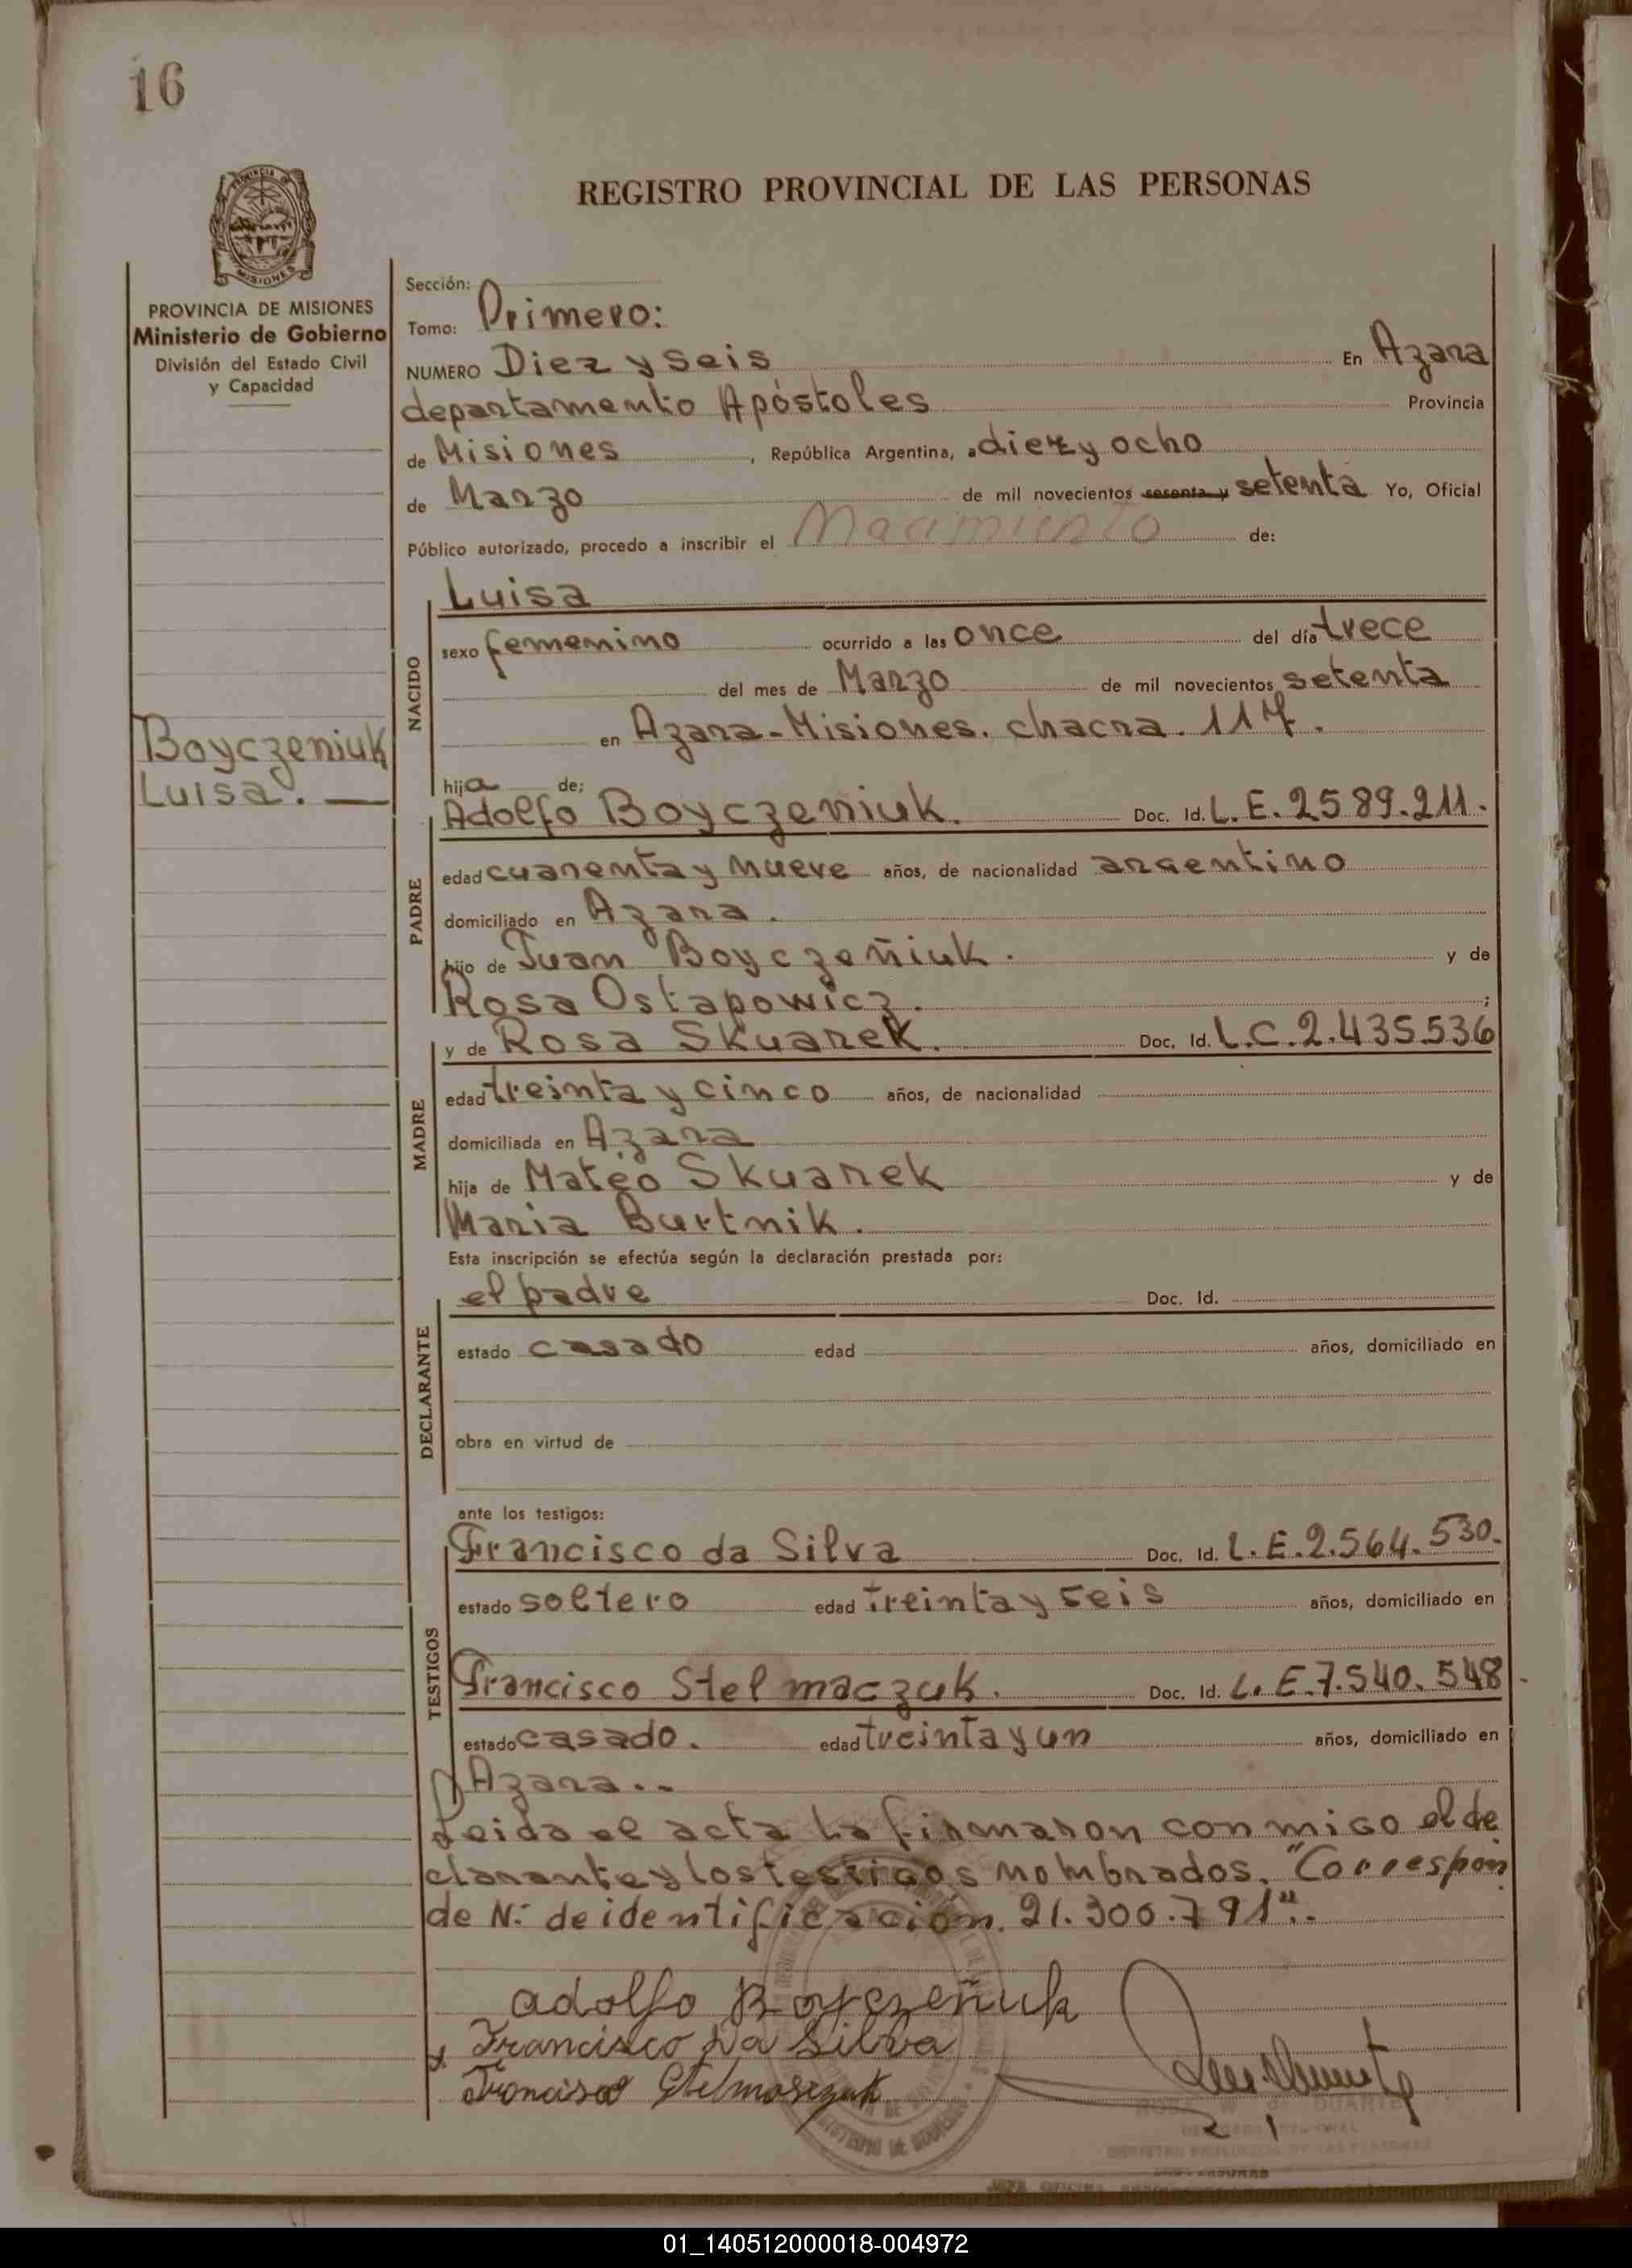 16
REGISTRO PROVINCIAL DE LAS PERSONAS
PROVINCIA DE MISIONES
Ministerio de Gobierno
División del Estado Civil
y Capacidad
Boyczeniuk
Luisa. —
Sección:
Tomo: Primero:
NUMERO Diez y seis En Azara
departamento Apóstoles Provincia
de Misiones, República Argentina, a diez y ocho
de Marzo de mil novecientos sesenta y setenta Yo, Oficial
Público autorizado, procedo a inscribir el Nacimiento de:
NACIDO
Luisa
sexo femenino ocurrido a las once del día trece
del mes de Marzo de mil novecientos setenta
en Azara-Misiones. chacra. 117.
hija de:
PADRE
Adolfo Boyczeniuk. Doc. Id. L.E.2589.211.
edad cuarenta y nueve años, de nacionalidad argentino
domiciliado en Azara.
hijo de Juan Boyczeñiuk. y de
Rosa Ostapowicz. ;
MADRE
y de Rosa Skuarek. Doc. Id. L.C.2.435.536
edad treinta y cinco años, de nacionalidad
domiciliada en Azara
hija de Mateo Skuarek y de
Maria Burtnik.
Esta inscripción se efectúa según la declaración prestada por:
DECLARANTE
el padre Doc. Id.
estado casado edad años, domiciliado en
obra en virtud de
ante los testigos:
TESTIGOS
Francisco da Silva Doc. Id. L.E.2.564.530.
estado soltero edad treinta y seis años, domiciliado en
Francisco Stelmaczuk. Doc. Id. L.E.7.540.548
estado casado. edad treinta y un años, domiciliado en
Azara..
Leida el acta la firmaron conmigo el de
clarante y los testigos nombrados. "Correspon
de N: de identificación. 21.300.791".-
adolfo Boyczeñuk
Francisco Da Silva
Francisco Stelmaszuk
DUARTE
01_140512000018-004972